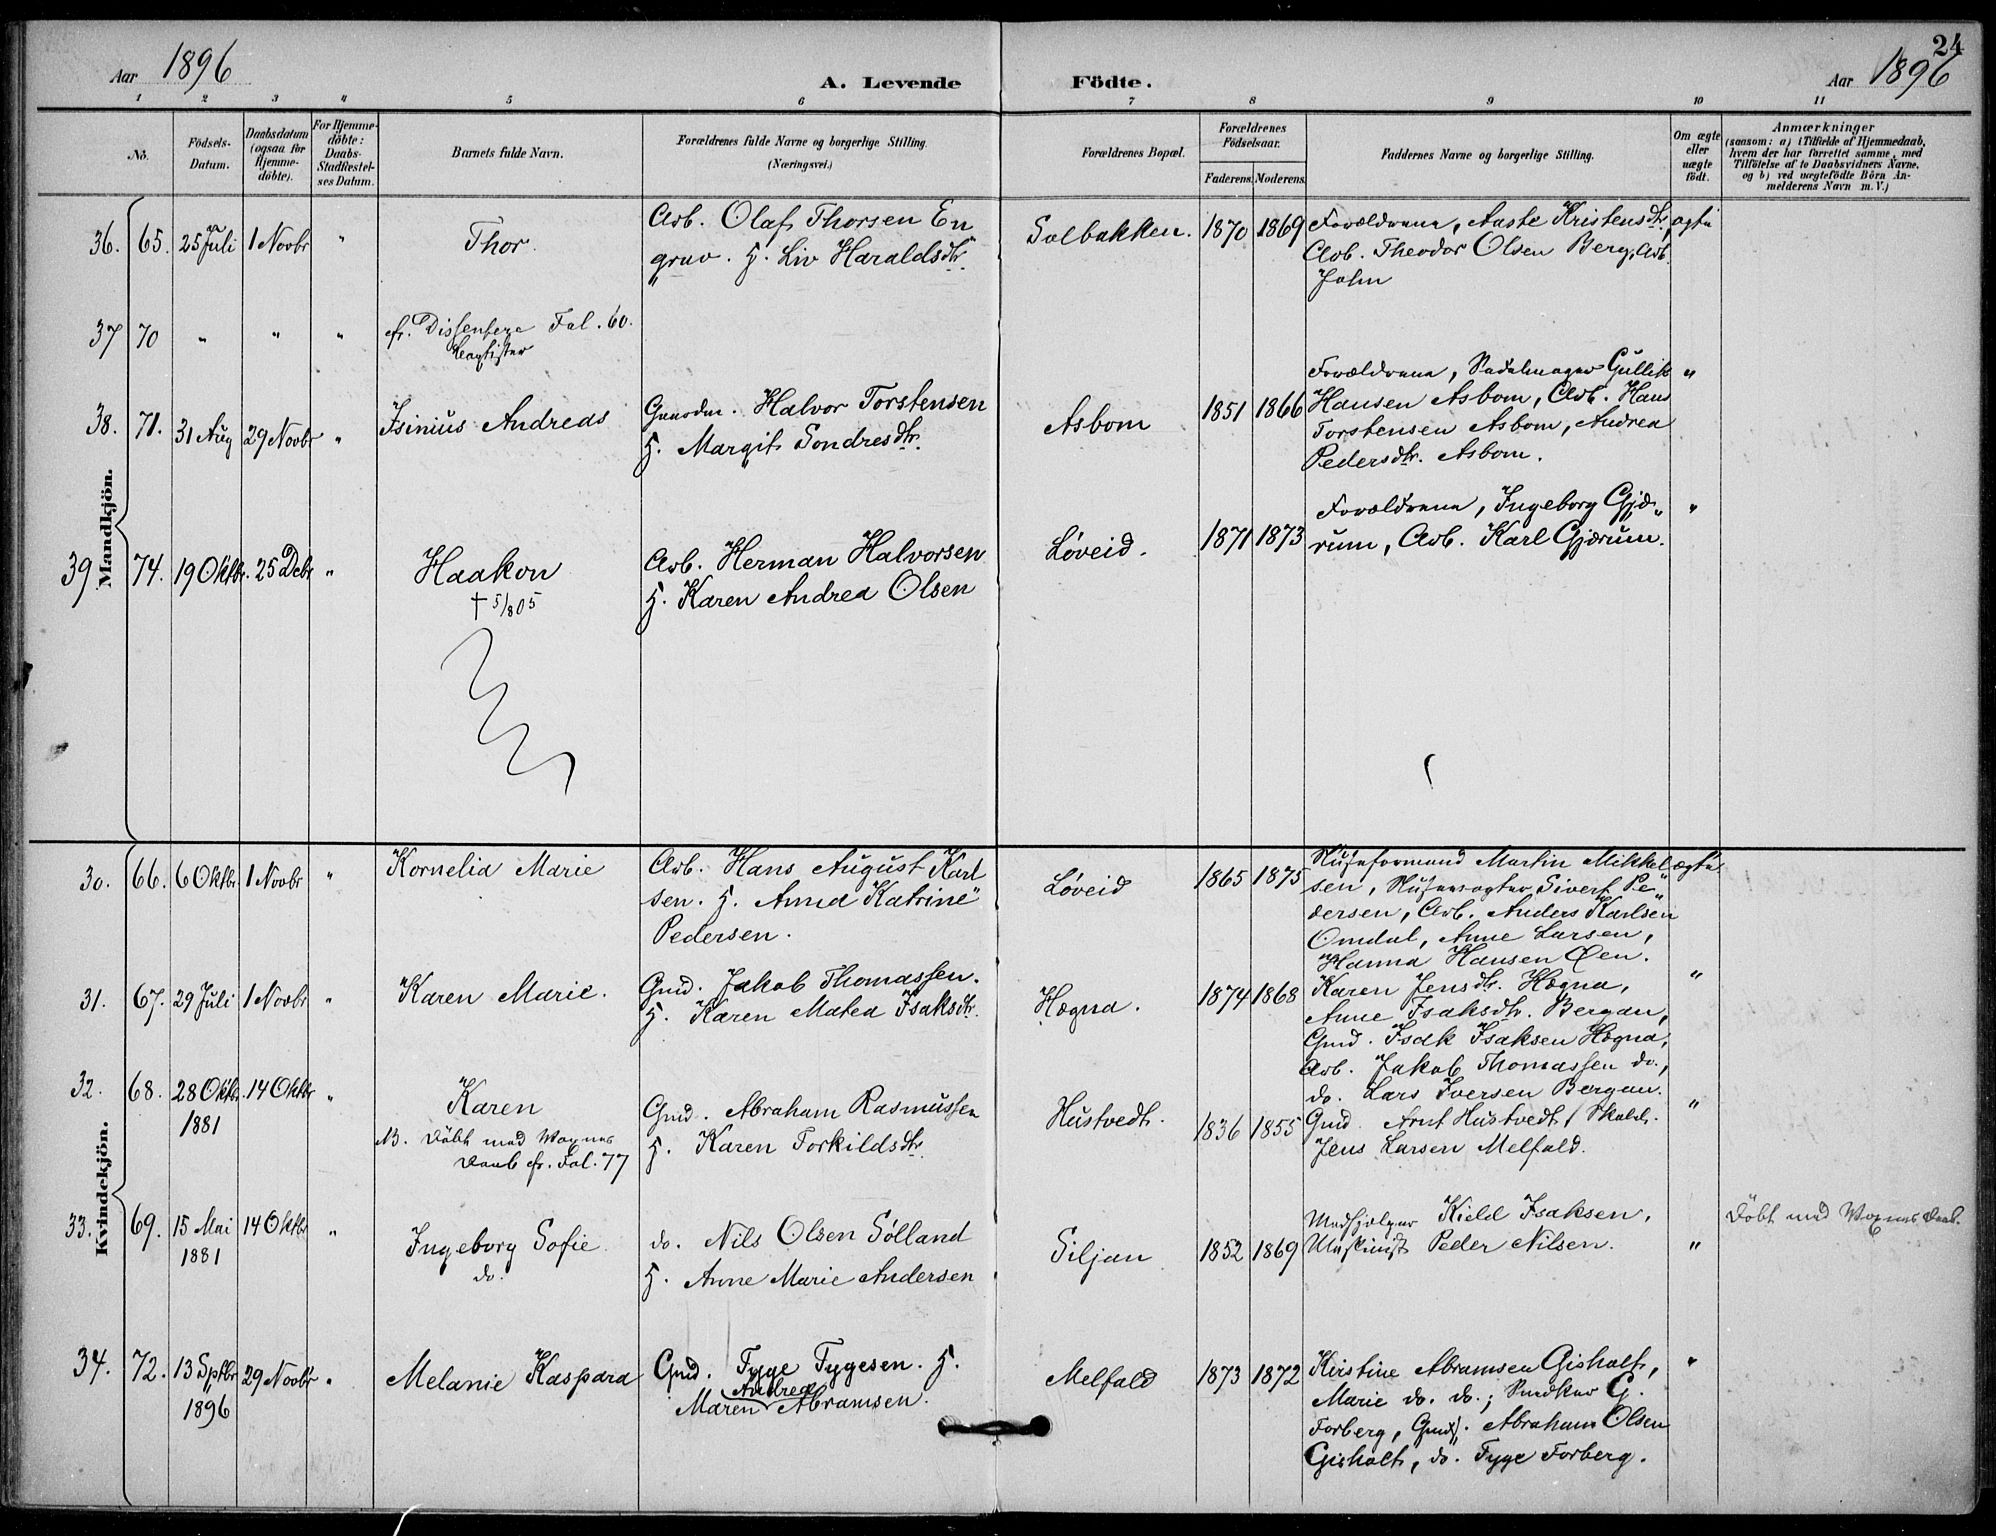 24
Aar 1896
A. Levende Födte.
Aar 1896
1 2 3 4 5 6 7 8 9 10 11
No.
Födsels-
Datum.
Daabsdatum
(ogsaa for
Hjemme-
döbte).
For Hjemme-
döbte:
Daabs-
Stadfæstel-
ses Datum.
Barnets fulde Navn.
Forældrenes fulde Navne og borgerlige Stilling.
(Næringsvei.)
Forældrenes Bopæl.
Forældrenes
Födselsaar.
Faderens. Moderens.
Faddernes Navne og borgerlige Stilling.
Om ægte
eller
uægte
födt.
Anmærkninger
(saasom: a) i Tilfælde af Hjemmedaab,
hvem der har forrettet samme, med
Tilföielse af to Daabsvidners Navne,
og b) ved uægtefödte Börn An-
melderens Navn m. V.)
Mandkjön.
36. 65. 25 Juli 1 Novbr "
Thor.
Arb. Olaf Thorsen En
grav. H. Liv Haraldsdtr.
Solbakken. 1870 1869
Forældrene, Aaste Kristensdtr, ægte
Arb. Theodor Olsen Berg, Arb.
John
37 70 " " "
cfr. Dissentere Fol. 60.
Baptister
38. 71. 31 Aug 29 Novbr "
Isinius Andreas
Gaardm. Halvor Torstensen
H. Margit Sondresdtr.
Asbom 1851 1866
Forældrene, Sadelmager Gullik "
Hansen Asbom, Arb. Hans
Torstensen Asbom, Andrea
Pedersdtr. Asbom.
39 74. 19 Oktbr. 25 Debr "
Haakon
† 5/8 05
Arb. Herman Halvorsen
H. Karen Andrea Olsen
Løveid. 1871 1873
Forældrene, Ingeborg Gjæ- "
rum, Arb. Karl Gjærum.
Kvindekjön.
30. 66. 6 Oktbr. 1 Novbr "
Kornelia Marie
Arb. Hans August Karl
sen. H. Anna Katrine
Pedersen.
Løveid 1865 1875
Slusformand Martin Mikkel ægte
sen, Slusevogter Sivert Pe-
dersen, Arb. Anders Karlsen
Omdal, Anne Larsen,
Hanna Hansen Øen.
31. 67. 29 Juli 1 Novbr "
Karen Marie.
Gmd. Jakob Thomassen.
H. Karen Matea Isaksdtr.
Hægna. 1874 1868
Karen Jensdtr. Hægna, "
Anne Isaksdtr. Bergan,
Gmd. Isak Isaksen Hægna,
Arb. Jakob Thomassen do.,
do. Lars Iversen Bergan.
32. 68. 28 Oktbr. 14 Oktbr "
1881
Karen
NB. Døbt med Voxnes
Daab cfr. Fol. 77
Gmd. Abraham Rasmussen
H. Karen Torkildsdtr.
Hustvedt. 1836 1855
Gmd. Arnt Hustvedt, "
Jens Larsen Melfald.
33. 69. 15 Mai 14 Oktbr "
1881
Ingeborg Sofie
do.
do. Nils Olsen Sølland
H. Anne Marie Andersen
Siljan 1852 1869
Medhjælper Kield Isaksen,
Maskinist Peder Nilsen. "
Döbt med Voxnes Daab.
34. 72. 13 Sptbr 29 Novbr "
1896
Melanie Kaspara
Gmd. Tyge Tygesen. H.
Maren Andrea Abramsen.
Melfald 1873 1872
Kirstine Abramsen Gisholt, "
Marie do. do.; Snedker G.
Forberg, Gmd. Abraham Olsen
Gisholt, do. Tyge Forberg.